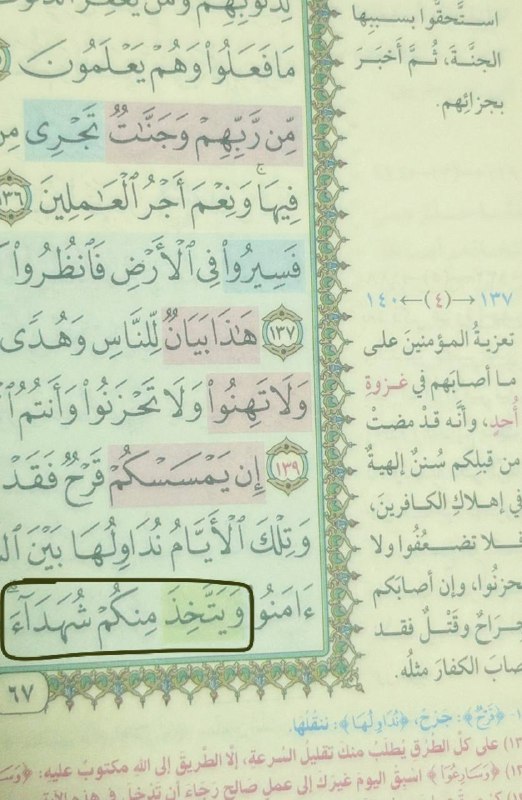 مَا فَعَلُوا۟ وَهُمْ يَعْلَمُونَ
مِّن رَّبِّهِمْ وَجَنَّٰتٌ تَجْرِى
فِيهَا ۚ وَنِعْمَ أَجْرُ ٱلْعَٰمِلِينَ ١٣٦
فَسِيرُوا۟ فِى ٱلْأَرْضِ فَٱنظُرُوا۟
١٣٧ هَٰذَا بَيَانٌ لِّلنَّاسِ وَهُدًى
وَلَا تَهِنُوا۟ وَلَا تَحْزَنُوا۟ وَأَنتُمُ
١٣٩ إِن يَمْسَسْكُمْ قَرْحٌ فَقَدْ
وَتِلْكَ ٱلْأَيَّامُ نُدَاوِلُهَا بَيْنَ
ءَامَنُوا۟ وَيَتَّخِذَ مِنكُمْ شُهَدَآءَ ۗ
٦٧
استَحقُّوا بسببِها
الجنَّةَ، ثُمَّ أخبَرَ
بجزائِهم.
١٣٧ ←(٤)← ١٤٠
تعزيةُ المؤمنينَ على
ما أصابَهم في غزوةِ
أُحدٍ، وأنَّه قدْ مضتْ
من قبلِكم سُننٌ إلهيةٌ
في إهلاكِ الكافرينَ،
فلا تضعُفُوا ولا
تحزنُوا، وإن أصابَكم
جراحٌ وقَتْلٌ فقد
أصابَ الكفارَ مثلُه.
﴿قَرْحٌ﴾: جَرْحٌ، ﴿نُدَاوِلُهَا﴾: نَنقُلُها.
على كلِّ الطرُقِ يُطلبُ منكَ تقليلُ السرعةِ، إلَّا الطَّريقَ إلى اللهِ مكتوبٌ عليه:
﴿وَسَارِعُوٓا۟﴾ اسبق اليومَ غيرَكَ إلى عملٍ صالحٍ رجاءَ أن تدخلَ في هذه